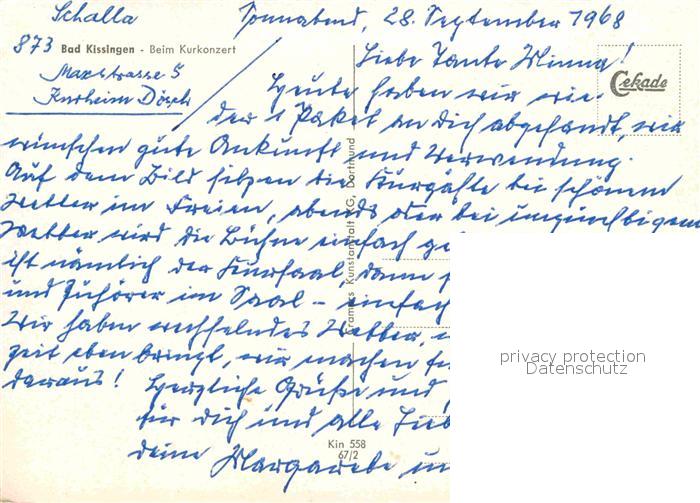 Schalla
Sonnabend, 28. September 1968
873 Bad Kissingen - Beim Kurkonzert
Maxstrasse 5
Kurheim Dösch
Liebe Tante Minna!
Cekade
Heute haben wir wie-
der 1 Paket an Dich abgesandt, wir
wünschen gute Ankunft und Verwendung.
Auf dem Bild sitzen die Kurgäste bei schönem
Wetter im Freien, abends oder bei ungünstigem
Wetter wird die Bühne einfach ge
ist nämlich der Kursaal, dann
und Zuhörer im Saal - einfach
Wir haben wechselndes Wetter,
zeit eben bringt, wir machen
daraus! Herzliche Grüße und
für Dich und alle Lieb
deine Margarete un
Cramers Kunstanstalt KG, Dortmund
Kin 558
67/2
privacy protection
Datenschutz